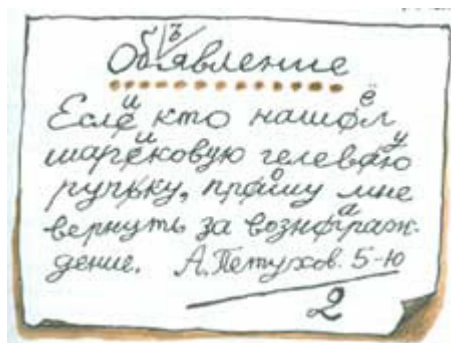 Объявление
Если кто нашёл
шариковую гелевую
ручку, прошу мне
вернуть за вознаграж-
дение. А. Петухов. 5-Ю
2